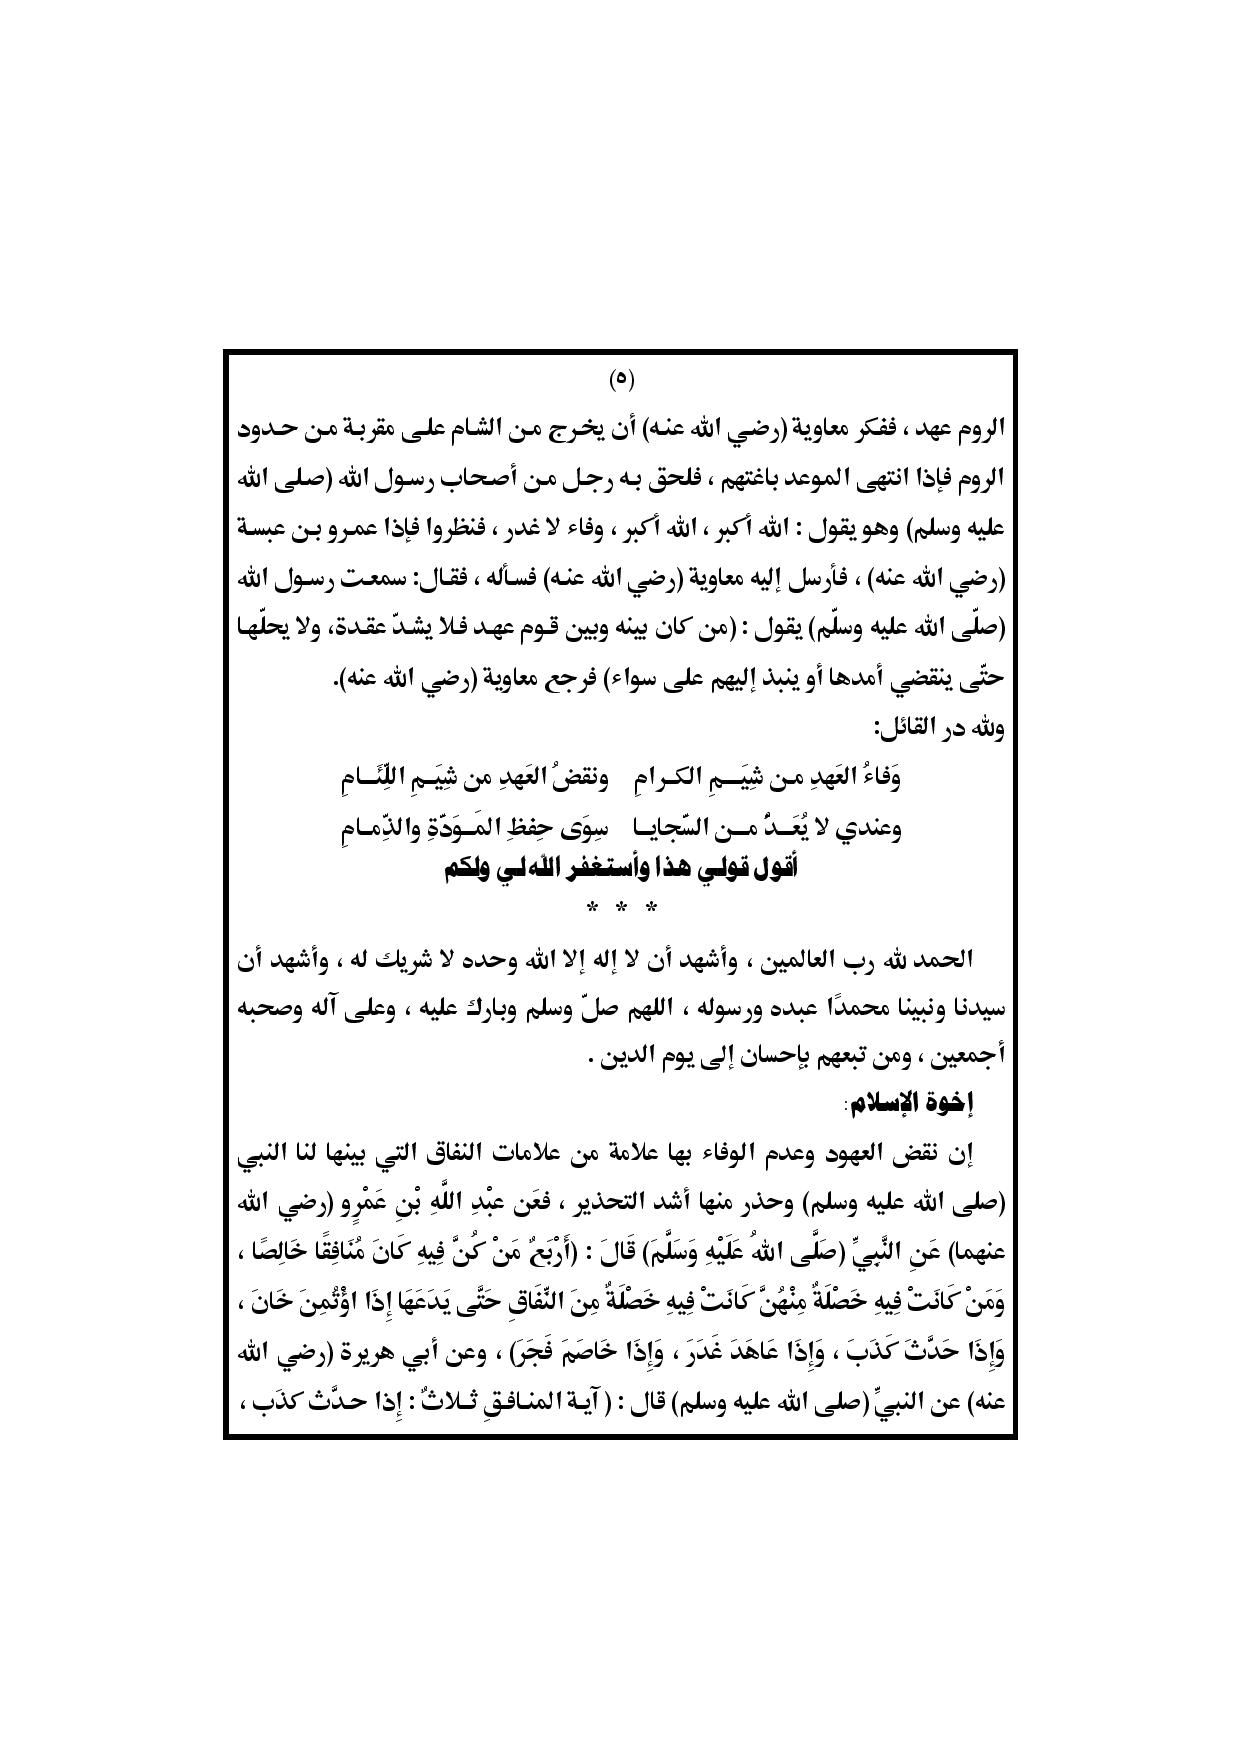 (٥)
الروم عهد ، ففكر معاوية (رضي الله عنه) أن يخرج من الشام على مقربة من حدود
الروم فإذا انتهى الموعد باغتهم ، فلحق به رجل من أصحاب رسول الله (صلى الله
عليه وسلم) وهو يقول : الله أكبر ، الله أكبر ، وفاء لا غدر ، فنظروا فإذا عمرو بن عبسة
(رضي الله عنه) ، فأرسل إليه معاوية (رضي الله عنه) فسأله ، فقال: سمعت رسول الله
(صلّى الله عليه وسلّم) يقول : (من كان بينه وبين قوم عهد فلا يشدّ عقدة، ولا يحلّها
حتّى ينقضي أمدها أو ينبذ إليهم على سواء) فرجع معاوية (رضي الله عنه).
ولله در القائل:
وَفاءُ العَهدِ من شِيَمِ الكرامِ ونقضُ العَهدِ من شِيَمِ اللِّئَامِ
وعندي لا يُعَدُّ من السّجايا سِوَى حِفظِ المَوَدّةِ والذِّمامِ
أقول قولي هذا وأستغفر الله لي ولكم
* * *
الحمد لله رب العالمين ، وأشهد أن لا إله إلا الله وحده لا شريك له ، وأشهد أن
سيدنا ونبينا محمدًا عبده ورسوله ، اللهم صلّ وسلم وبارك عليه ، وعلى آله وصحبه
أجمعين ، ومن تبعهم بإحسان إلى يوم الدين .
إخوة الإسلام:
إن نقض العهود وعدم الوفاء بها علامة من علامات النفاق التي بينها لنا النبي
(صلى الله عليه وسلم) وحذر منها أشد التحذير ، فعَن عبْدِ اللَّهِ بْنِ عَمْرٍو (رضي الله
عنهما) عَنِ النَّبِيِّ (صَلَّى اللهُ عَلَيْهِ وَسَلَّمَ) قَالَ : (أَرْبَعٌ مَنْ كُنَّ فِيهِ كَانَ مُنَافِقًا خَالِصًا ،
وَمَنْ كَانَتْ فِيهِ خَصْلَةٌ مِنْهُنَّ كَانَتْ فِيهِ خَصْلَةٌ مِنَ النِّفَاقِ حَتَّى يَدَعَهَا إِذَا اؤْتُمِنَ خَانَ ،
وَإِذَا حَدَّثَ كَذَبَ ، وَإِذَا عَاهَدَ غَدَرَ ، وَإِذَا خَاصَمَ فَجَرَ) ، وعن أبي هريرة (رضي الله
عنه) عن النبيِّ (صلى الله عليه وسلم) قال : ( آية المنافقِ ثلاثٌ : إِذا حدَّث كذَب ،